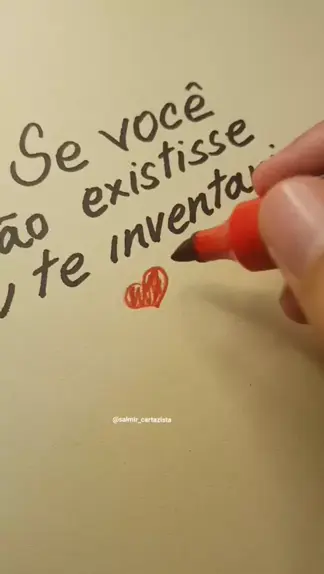 Se você
ão existisse
te inventa
@salmir_cartazista